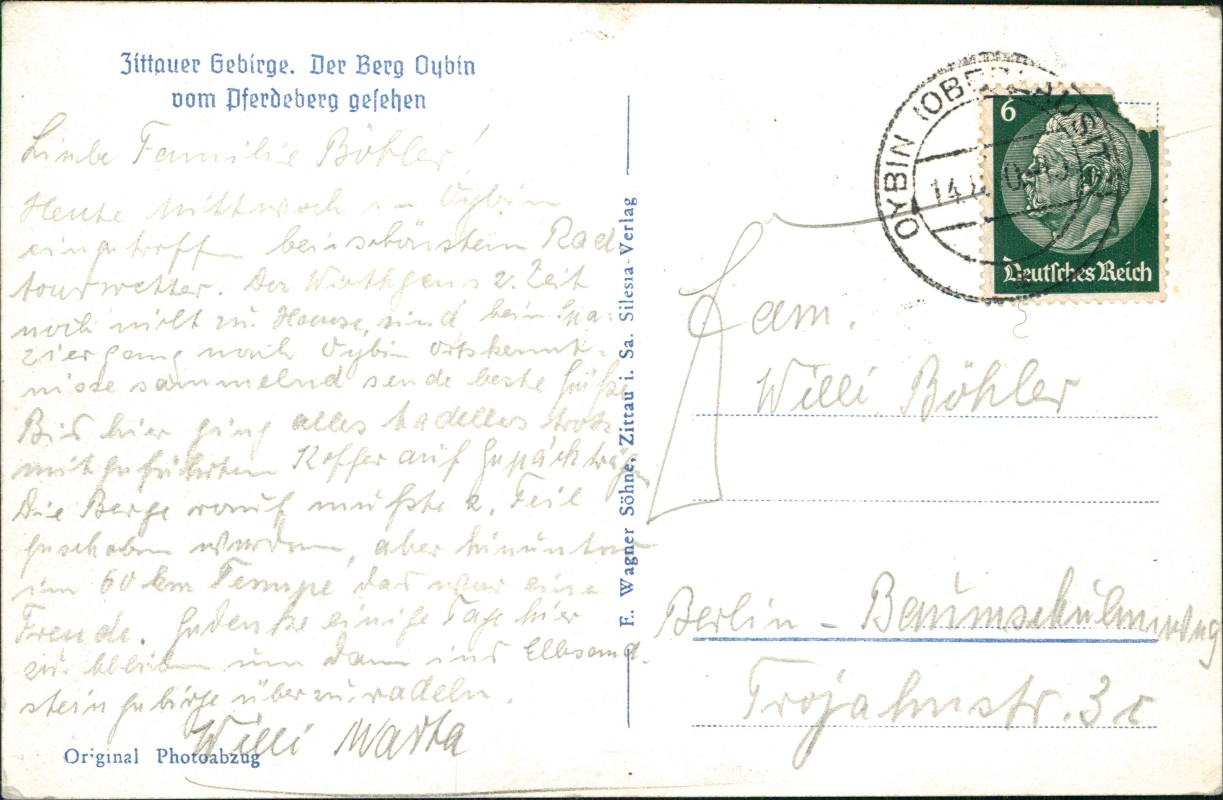 Zittauer Gebirge. Der Berg Oybin
vom Pferdeberg gesehen
Liebe Familie Böhler!
Heute Mittwoch in Oybin
eingetroffen bei schönstem Rad
tourwetter. Da z. Zeit
noch nicht zu Hause, sind beim Spa-
ziergang nach Oybin Ortskennt-
nisse sammelnd sende beste Grüße
Bis hier ging alles tadellos trotz
mitgeführtem Koffer auf Gepäckträger
Die Berge rauf mußte z. Teil
geschoben werden, aber hinunter
im 60 km Tempo das war eine
Freude. Gedenke einige Tage hier
zu bleiben um dann ins Elbsand-
steingebirge überzuradeln.
Willi Marta
Original Photoabzug
E. Wagner Söhne, Zittau i. Sa. Silesia-Verlag
OYBIN (OBERLAUSITZ)
14.
6
Deutsches Reich
Fam.
Willi Böhler
Berlin - Baumschulenweg
Trojahnstr. 3c